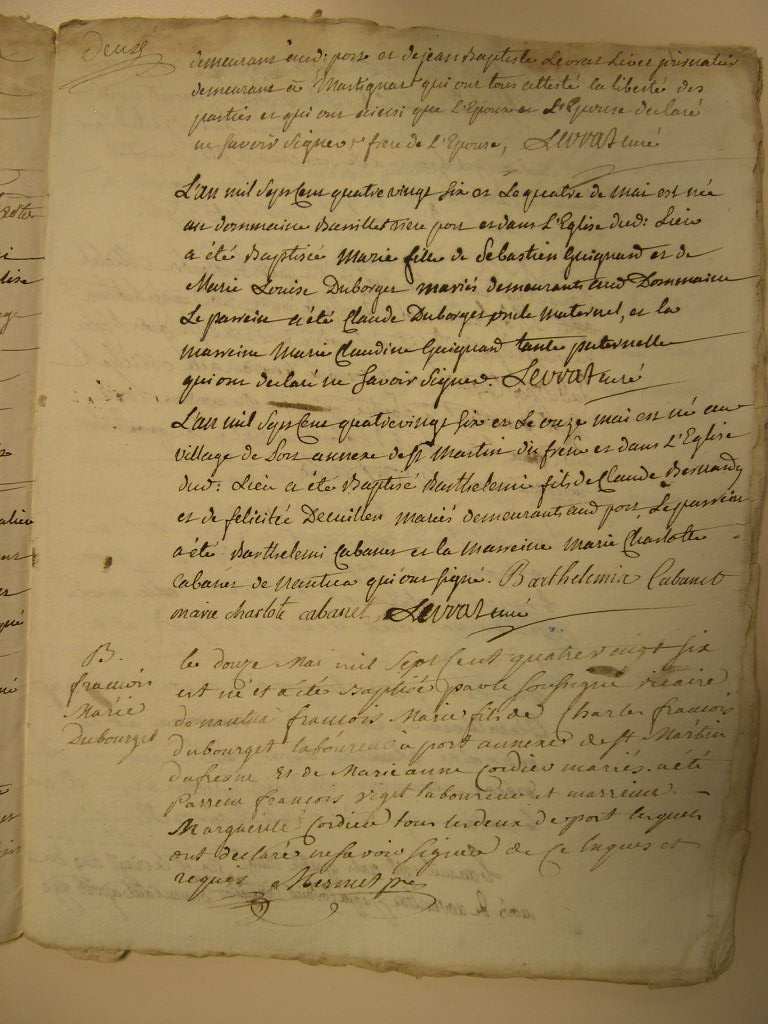 demeurant aud: port et de jean Baptiste Levrat
demeurant à Martignat qui ont tous attesté la liberté des
parties et qui ont ainsi que L'Epoux et L'Epouse declaré
ne savoir signer frere de L'Epouse, Levrat curé
L'an mil sept Cent quatre vingt six et Le quatre de mai est née
au dommaine et dans L'Eglise dud: Lieu
a été Baptisée Marie fille de Sebastien Guignard et de
Marie Louise Duborget mariés demeurants aud Dommaine
Le parrein a été Claude Duborget oncle maternel, et la
marreine Marie Claudine Guignard tante paternelle
qui ont declaré ne savoir signer. Levrat curé
L'an mil sept Cent quatre vingt six et Le onze mai est né au
village de Port annexe de St Martin du frêne et dans L'Eglise
dud: Lieu a été Baptisé Barthelemi fils de Claude
et de felicitée mariés demeurants aud port. Le parrein
a été Barthelemi Cabanet et la marreine Marie Charlotte
Cabanet de nantua qui ont signé. Barthelemix Cabanet
marie charlote cabanet Levrat curé
B.
francois
Marie
Dubourget
le douze mai mil sept cent quatre vingt six
est né et a été Baptisé par le soussigné vicaire
de nantua francois Marie fils de Charles francois
dubourget laboureur à port annexe de st Martin
du fresne et de Marie anne Cordier mariés. a été
Parrein francois laboureur et marreine
Marguerite Cordier tous les deux de port lesquels
ont declaré ne savoir signer de ce enquis et
requis Mermet